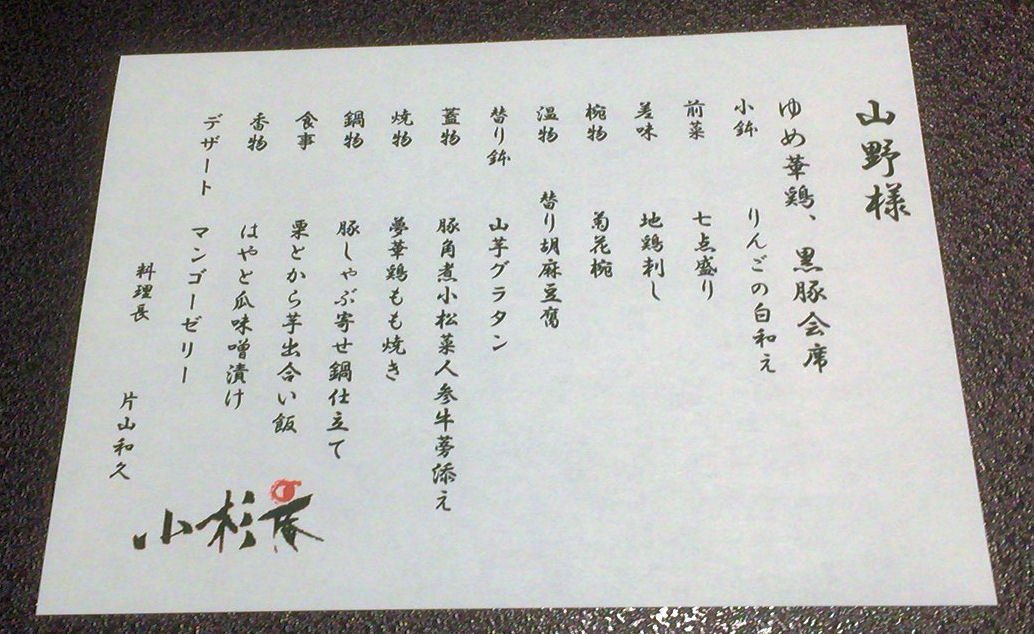 山野様
ゆめ華鶏、黒豚会席
小鉢 りんごの白和え
前菜 七点盛り
差味 地鶏刺し
椀物 菊花椀
温物 替り胡麻豆腐
替り鉢 山芋グラタン
蓋物 豚角煮小松菜人参牛蒡添え
焼物 夢華鶏もも焼き
鍋物 豚しゃぶ寄せ鍋仕立て
食事 栗とから芋出合い飯
香物 はやと瓜味噌漬け
デザート マンゴーゼリー
料理長 片山和久
小杉庵